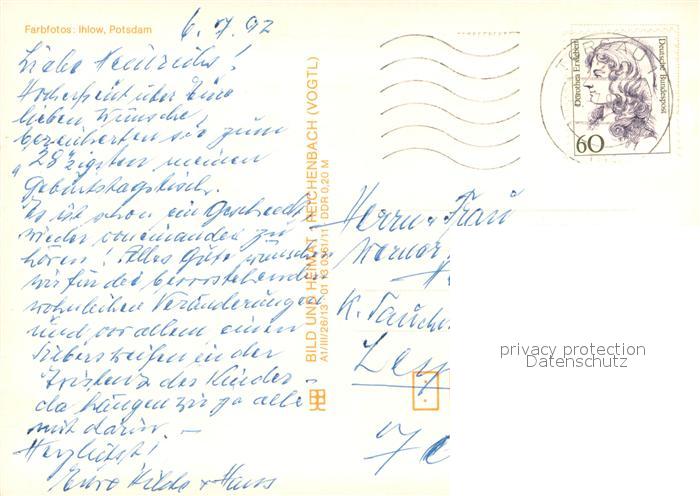 Farbfotos: Ihlow, Potsdam
6.7.92
Liebe
Hocherfreut über Eure
lieben Wünsche,
sie zum
"28zigsten meinen
Geburtstagstisch.
Es ist schon ein Geschenk
wieder voneinander zu
hören! Alles Gute wünschen
wir für die bevorstehenden
wohnlichen Veränderungen
und vor allem einen
in der
Existenz der Kinder –
da hängen wir ja alle
mit darin. –
Herzlichst!
Eure Hilde + Hans
BILD UND HEIMAT REICHENBACH (VOGTL)
A1/III/26/13 DDR 0,20 M
Dorothea Erxleben
Deutsche Bundespost
60
Herrn + Frau
Werner
K. Tauchn
privacy protection
Datenschutz